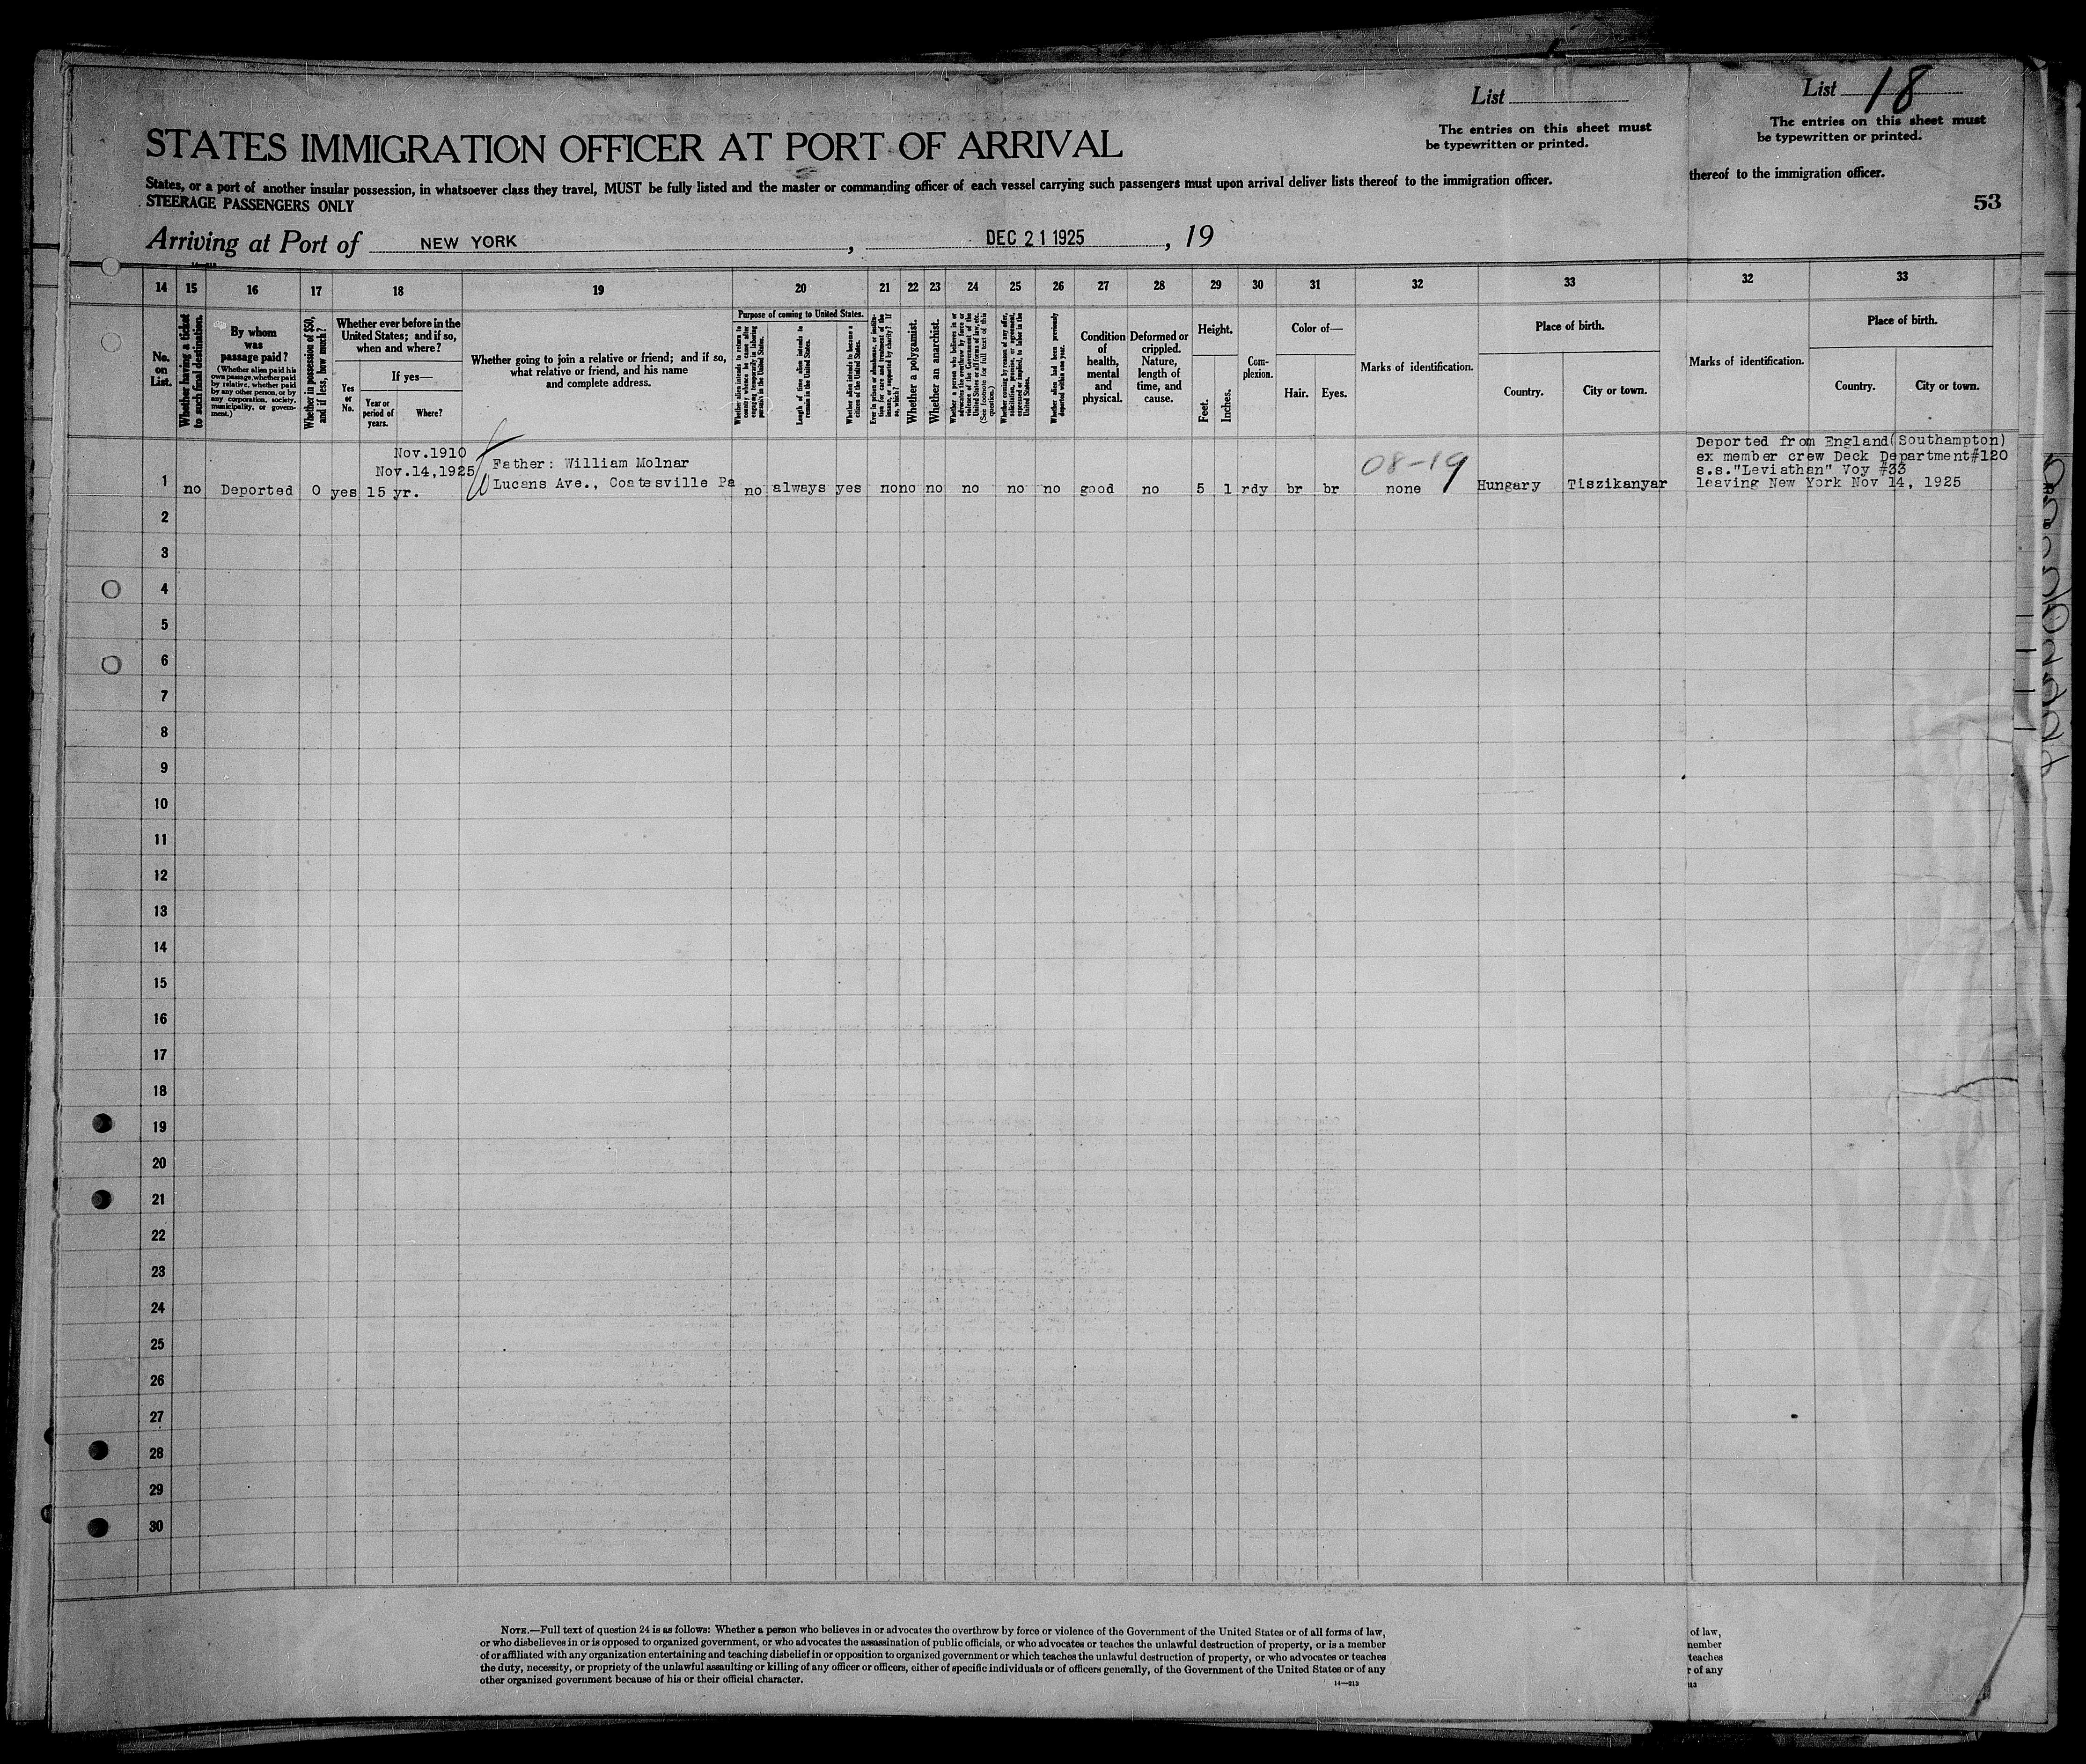 List
List 18
The entries on this sheet must
be typewritten or printed.
The entries on this sheet must
be typewritten or printed.
STATES IMMIGRATION OFFICER AT PORT OF ARRIVAL
States, or a port of another insular possession, in whatsoever class they travel, MUST be fully listed and the master or commanding officer of each vessel carrying such passengers must upon arrival deliver lists thereof to the immigration officer.
thereof to the immigration officer.
STEERAGE PASSENGERS ONLY
53
Arriving at Port of NEW YORK, DEC 21 1925, 19
14 15 16 17 18 19 20 21 22 23 24 25 26 27 28 29 30 31 32 33 32 33
No. on List.
Whether having a ticket to such final destination.
By whom was passage paid?
(Whether alien paid his own passage, whether paid by relative, whether paid by any other person, or by any corporation, society, municipality, or government.)
Whether in possession of $50, and if less, how much?
Whether ever before in the United States; and if so, when and where?
Yes or No.
If yes—
Year or period of years.
Where?
Whether going to join a relative or friend; and if so, what relative or friend, and his name and complete address.
Purpose of coming to United States.
Whether alien intends to return to country whence he came after engaging temporarily in laboring pursuits in the United States.
Length of time alien intends to remain in the United States.
Whether alien intends to become a citizen of the United States.
Ever in prison or almshouse, or institution for care and treatment of the insane, or supported by charity? If so, which?
Whether a polygamist.
Whether an anarchist.
Whether a person who believes in or advocates the overthrow by force or violence of the Government of the United States or all forms of law, etc. (See footnote for full text of this question.)
Whether coming by reason of any offer, solicitation, promise, or agreement, expressed or implied, to labor in the United States.
Whether alien had been previously deported within one year.
Condition of health, mental and physical.
Deformed or crippled. Nature, length of time, and cause.
Height.
Feet.
Inches.
Complexion.
Color of—
Hair.
Eyes.
Marks of identification.
Place of birth.
Country.
City or town.
Marks of identification.
Place of birth.
Country.
City or town.
Nov.1910
Nov.14,1925
Father: William Molnar
08-19
Deported from England(Southampton)
ex member crew Deck Department#120
s.s."Leviathan" Voy #33
leaving New York Nov 14, 1925
1 no Deported 0 yes 15 yr. Lucens Ave., Coatesville Pa no always yes no no no no no no good no 5 1 rdy br br none Hungary Tiszikanyar
2
3
4
5
6
7
8
9
10
11
12
13
14
15
16
17
18
19
20
21
22
23
24
25
26
27
28
29
30
NOTE.—Full text of question 24 is as follows: Whether a person who believes in or advocates the overthrow by force or violence of the Government of the United States or of all forms of law,
or who disbelieves in or is opposed to organized government, or who advocates the assassination of public officials, or who advocates or teaches the unlawful destruction of property, or is a member
of or affiliated with any organization entertaining and teaching disbelief in or opposition to organized government or which teaches the unlawful destruction of property, or who advocates or teaches
the duty, necessity, or propriety of the unlawful assaulting or killing of any officer or officers, either of specific individuals or of officers generally, of the Government of the United States or of any
other organized government because of his or their official character.
14—213
of law,
member
teaches
r of any
213